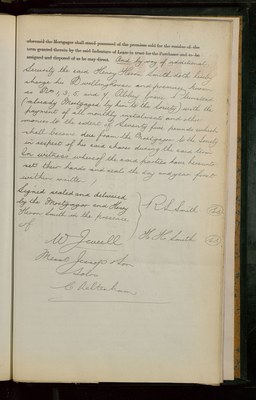 aforesaid the Mortgagor shall stand possessed of the premises sold for the residue of the
term granted therein by the said Indenture of Lease in trust for the Purchaser and to be
assigned and disposed of as he may direct And by way of additional
Security the said Henry Hiram Smith doth hereby
charge his dwellinghouses and premises known
as Nos 1, 3, 5 and 7 Abbey
(already Mortgaged by him to the Society) with the
payment of all monthly instalments and other
monies to the extent of Twenty five pounds which
shall become due from the Mortgagor to the Society
in respect of his said shares during the said term
In witness whereof the said parties have hereunto
set their hands and seals the day and year first
within written
Signed sealed and delivered
by the Mortgagor and Henry
Hiram Smith in the presence
of
R Smith
H. H. Smith
W Jewell
Messrs Jessop & Son
Solrs
Cheltenham